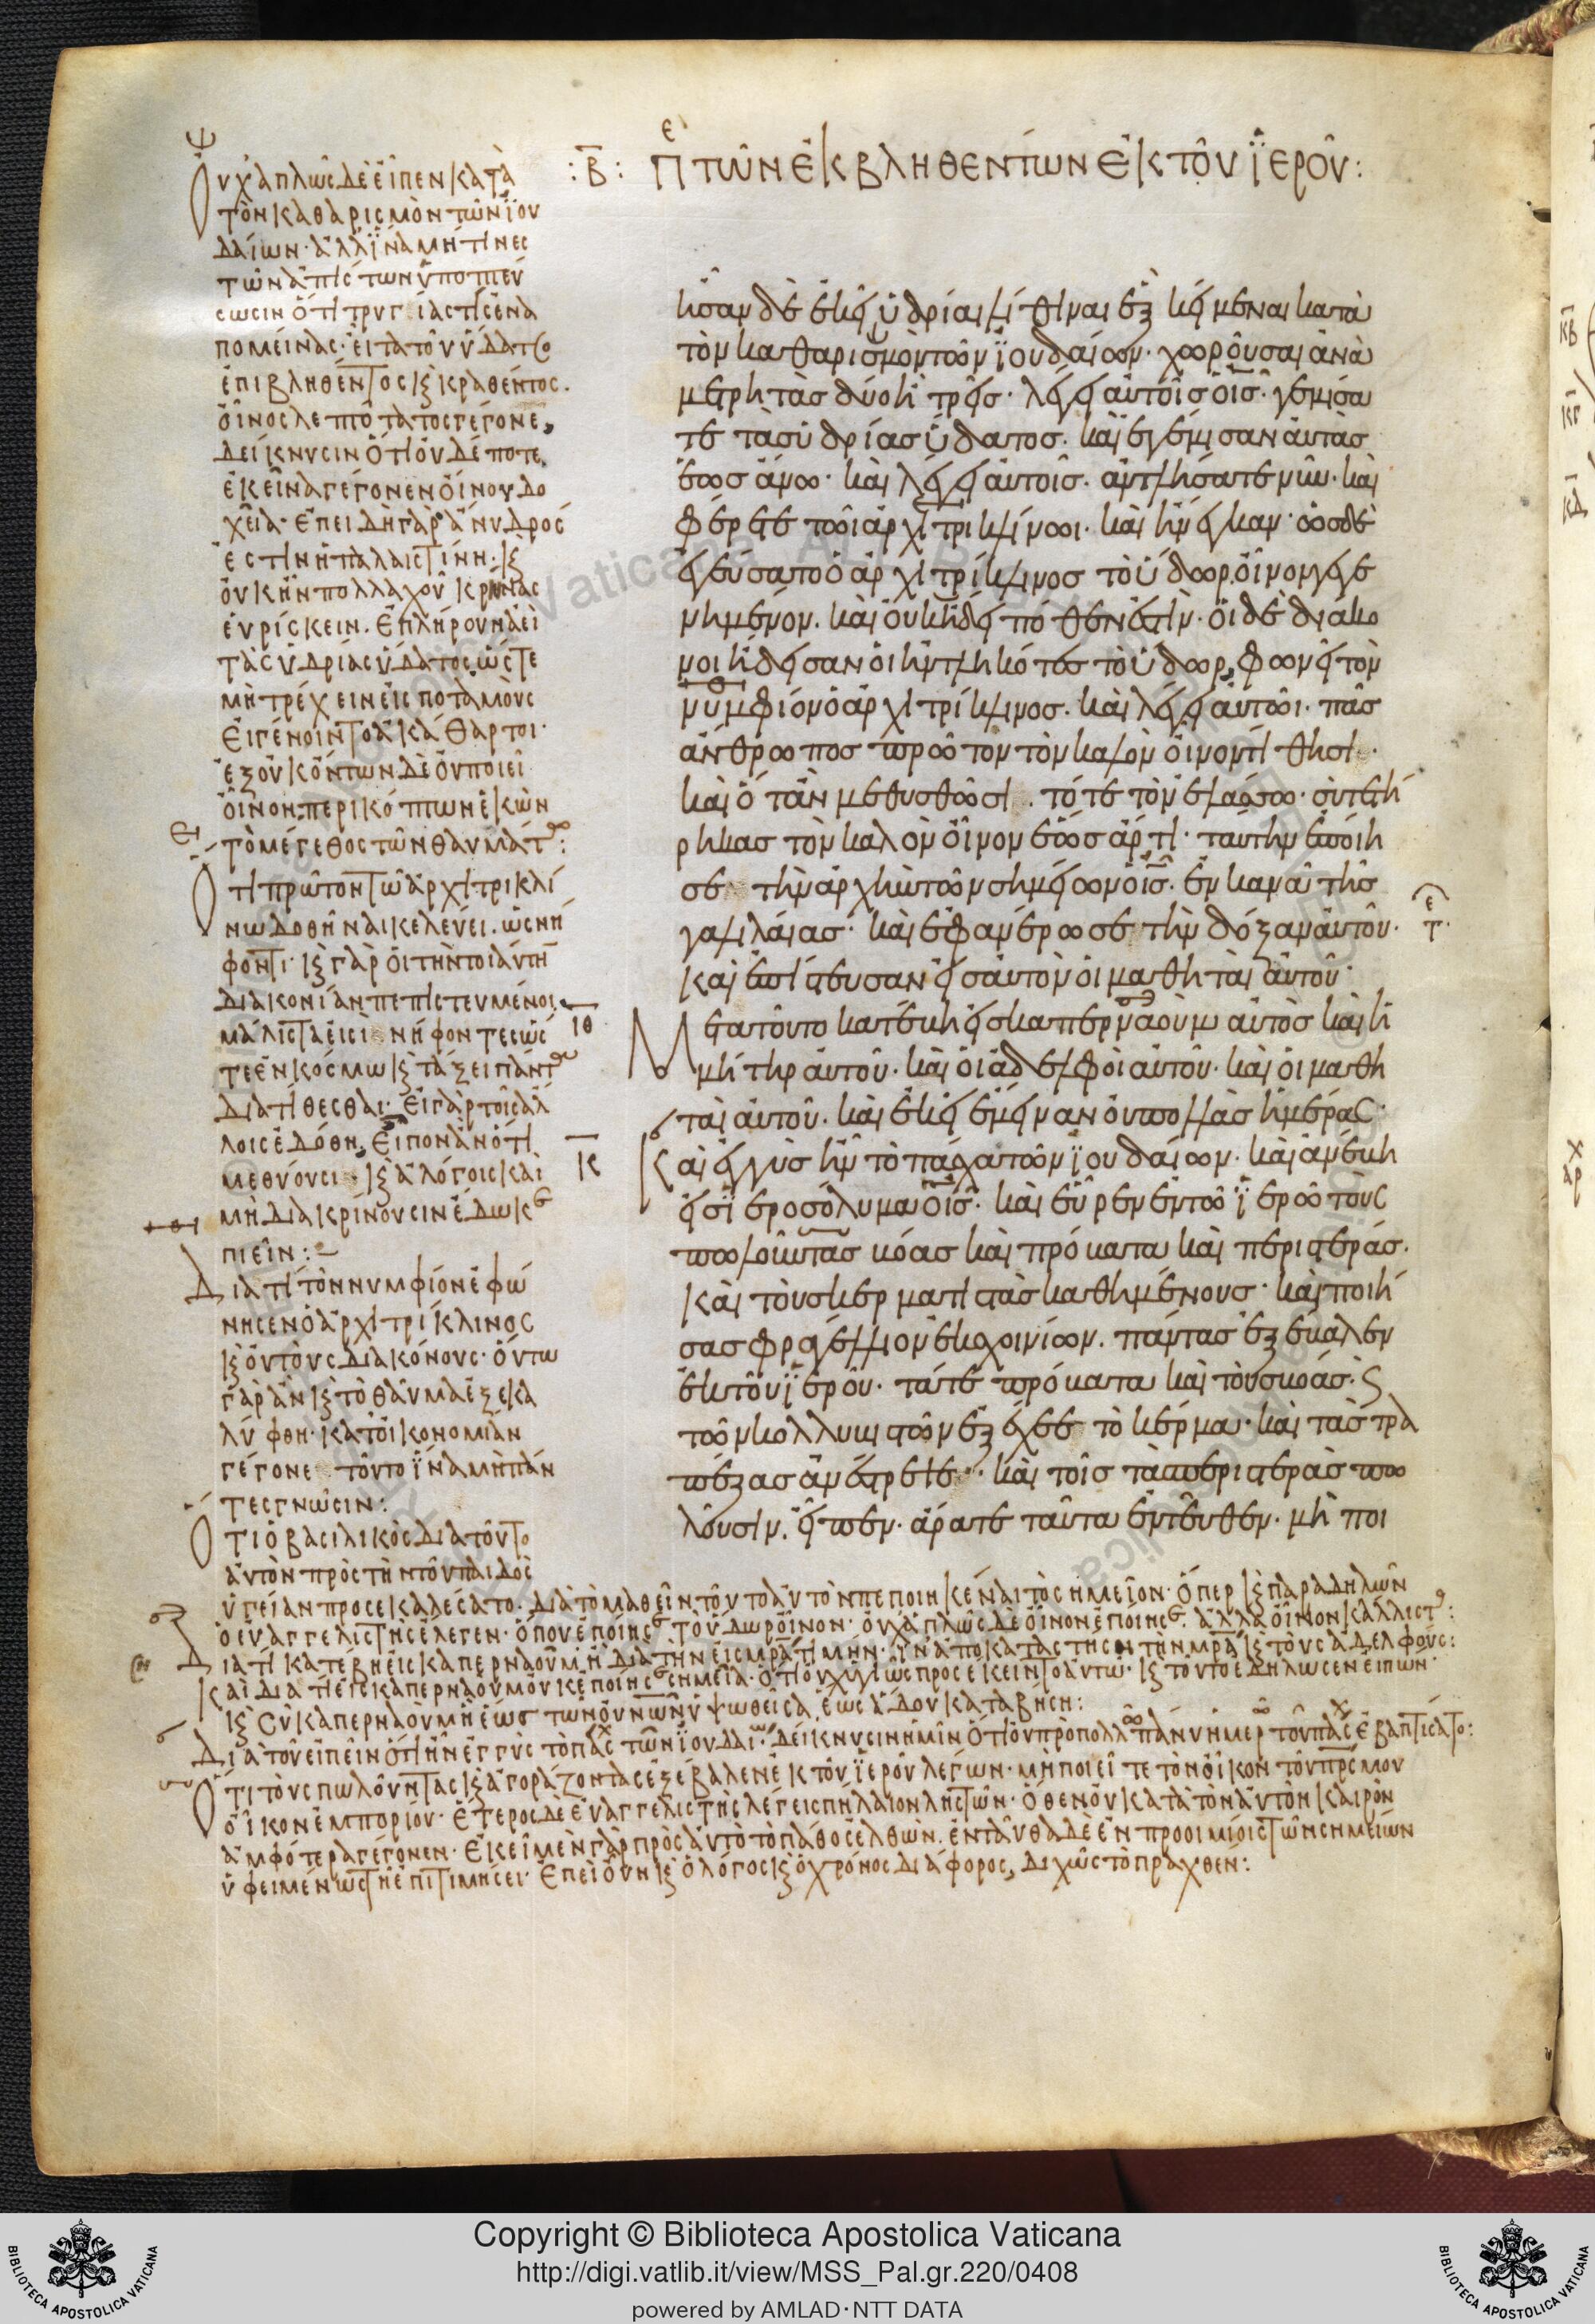 :Β: Πε τῶν ἐκβληθέντων ἐκ τοῦ ἱεροῦ:
ἦσαν δὲ ἐκεῖ ὑδρίαι λίθιναι ἓξ κείμεναι κατὰ
τὸν καθαρισμὸν τῶν ϊουδαίων· χωροῦσαι ἀνὰ
μετρητὰς δύο ἢ τρεῖς· λέγει αὐτοῖς ὁ ις· γεμίσα
τε τὰς ὑδρίας ὕδατος· καὶ ἐγέμισαν αὐτὰς
ἕως ἄνω· καὶ λέγει αὐτοῖς· ἀντλήσατε νῦν· καὶ
φέρετε τῶι ἀρχιτρικλίνωι· καὶ ἤνεγκαν· ὡς δὲ
ἐγεύσατο ὁ ἀρχιτρίκλινος τὸ ὕδωρ οἶνον γεγε
νημένον· καὶ οὐκ ἤδει πόθεν ἐστίν· οἱ δὲ διάκο
νοι ᾔδεισαν οἱ ἠντληκότες τὸ ὕδωρ, φωνεῖ τὸν
νυμφίον ὁ ἀρχιτρίκλινος· καὶ λέγει αὐτῶι· πᾶς
ἄνθρωπος πρῶτον τὸν καλὸν οἶνον τίθησι·
καὶ ὅταν μεθυσθῶσι· τότε τὸν ἐλάσσω· σὺ τετή
ρηκας τὸν καλὸν οἶνον ἕως ἄρτι· ταύτην ἐποίη
σε τὴν ἀρχὴν τῶν σημείων ὁ ις· ἐν κανᾶ τῆς
γαλιλαίας· καὶ ἐφανέρωσε τὴν δόξαν αὐτοῦ·
καὶ ἐπίστευσαν εἰς αὐτὸν οἱ μαθηταὶ αὐτοῦ·
ΙΘ Μετὰ τοῦτο κατέβη εἰς καπερναοὺμ αὐτὸς καὶ ἡ
μήτηρ αὐτοῦ· καὶ οἱ ἀδελφοὶ αὐτοῦ· καὶ οἱ μαθη
ταὶ αὐτοῦ· καὶ ἐκεῖ ἔμειναν οὐ πολλὰς ἡμέρας·
Κ Καὶ ἐγγὺς ἦν τὸ πάσχα τῶν ϊουδαίων· καὶ ἀνέβη
εἰς ϊεροσόλυμα ὁ ις· καὶ εὗρεν ἐν τῶ ϊερῶ τοὺς
πωλοῦντας βόας καὶ πρόβατα καὶ περιστεράς·
καὶ τοὺς κερματιστὰς καθημένους· καὶ ποιή
σας φραγέλλιον ἐκ σχοινίων· πάντας ἐξέβαλεν
ἐκ τοῦ ϊεροῦ· τά τε πρόβατα καὶ τοὺς βόας· Ϛ
τῶν κολλυβιστῶν ἐξέχεε τὸ κέρμα· καὶ τὰς τρα
πέζας ἀνέστρεψε· καὶ τοῖς τὰς περιστερὰς πω
λοῦσιν· εἶπεν· ἄρατε ταῦτα ἐντεῦθεν· μὴ ποι
Οὐχ ἁπλῶς δὲ εἶπεν κατὰ
τὸν καθαρισμὸν τῶν ϊου
δαίων· ἀλλ ϊνα μή τινες
τῶν ἀπίστων ὑποπτεύ
σωσιν ὅτι τρυγίας τις ἐνα
πομείνας· εἶτα τοῦ ὕδατος
ἐπιβληθέντος κ κραθέντος·
οἶνος λεπτότατος γέγονε,
δείκνυσιν ὅτι οὐδέποτε
ἐκεῖνα γέγονεν οἴνου δο
χεῖα· ἐπειδὴ γὰρ ἄνυδρος
ἐστὶν ἡ παλαιστίνη· κ
οὐκ ἦν πολλαχοῦ κρήνας
εὑρίσκειν· ἐπλήρουν ἀεὶ
τὰς ὑδρίας ὕδατος, ὥστε
μὴ τρέχειν εἰς ποταμοὺς
εἰ γένοιντο ἀκάθαρτοι·
ἐξ οὐκ ὄντων δὲ οὐ ποιεῖ
οἶνον, περικόπτων ἑκὼν
τὸ μέγεθος τῶν θαυμάτ:
Ὅτι πρῶτον τῶ ἀρχιτρικλί
νω δοθῆναι κελεύει· ὡς νή
φοντι· κ γὰρ οἱ τὴν τοιαύτη
διακονίαν πεπιστευμένοι,
μάλιστά εἰσι νήφοντες ὥς
τε ἐν κόσμω κ τάξει πάντα
διατίθεσθαι· εἰ γὰρ τοῖς ἄλ
λοις ἐδόθη, εἶπον ἂν ὅτι
μεθύουσι· κ ἀλόγοις καὶ
μὴ διακρίνουσιν ἔδωκε
πιεῖν:
Διατί τὸν νυμφίον ἐφώ
νησεν ὁ ἀρχιτρίκλινος
κ οὐ τοὺς διακόνους· οὕτω
γὰρ ἂν κ τὸ θαῦμα ἐξεκα
λύφθη· κατ οἰκονομίαν
γέγονε τοῦτο ϊνα μὴ πάν
τες γνῶσιν:
Ὅτι ὁ βασιλικὸς διὰ τοῦτο
αὐτὸν πρὸς τὴν τοῦ παιδὸς
ὑγείαν προσεκαλέσατο· διὰ τὸ μαθεῖν τοῦτο αὐτὸν πεποιηκέναι τὸ σημεῖον· ὅπερ κ παραδηλῶν
ὁ εὐαγγελιστὴς ἔλεγεν· ὅπου ἐποίησε τὸ ὕδωρ οἶνον· οὐχ ἁπλῶς δὲ οἶνον ἐποίησε· ἀλλὰ οἶνον κάλλιστ:
Διατί κατέβη εἰς καπερναούμ· ἢ διὰ τὴν εἰς μρα τιμήν· ϊν ἀποκαταστήση τὴν μρα κ τοὺς ἀδελφούς:
Καὶ διατί εἰς καπερναοὺμ οὐκ ἐποίησε σημεῖα· ὅτι οὐχ ὑγιῶς προσέκειντο αὐτῶ· κ τοῦτο ἐδήλωσεν εἰπών·
κ σὺ καπερναοὺμ ἡ ἕως τῶν οὐνῶν ὑψωθεῖσα, ἕως ἅδου καταβήση:
Διὰ τοῦ εἰπεῖν ὅτι ἦν ἐγγὺς τὸ πάσχ τῶν ϊουδαι· δείκνυσιν ἡμῖν ὅτι οὐ πρὸ πολλῶ πάνυ ἡμερ τοῦ πάσχ ἐβαπτίσατο:
Ὅτι τοὺς πωλοῦντας κ ἀγοράζοντας ἐξέβαλεν ἐκ τοῦ ϊεροῦ λέγων· μὴ ποιεῖτε τὸν οἶκον τοῦ πρς μου
οἶκον ἐμπορίου· ἕτερος δὲ εὐαγγελιστὴς λέγει σπήλαιον ληστῶν· ὅθεν οὐ κατὰ τὸν αὐτὸν καιρὸν
ἀμφότερα γέγονεν· ἐκεῖ μὲν γὰρ πρὸς αὐτὸ τὸ πάθος ἐλθών· ἐνταῦθα δὲ ἐν προοιμίοις τῶν σημείων
ὑφειμένως τῆ ἐπιτιμήσει· ἐπεὶ οὖν κ ὁ λόγος κ ὁ χρόνος διάφορος, διχῶς τὸ πραχθέν:
Copyright © Biblioteca Apostolica Vaticana
http://digi.vatlib.it/view/MSS_Pal.gr.220/0408
powered by AMLAD·NTT DATA
BIBLIOTECA APOSTOLICA VATICANA
BIBLIOTECA APOSTOLICA VATICANA